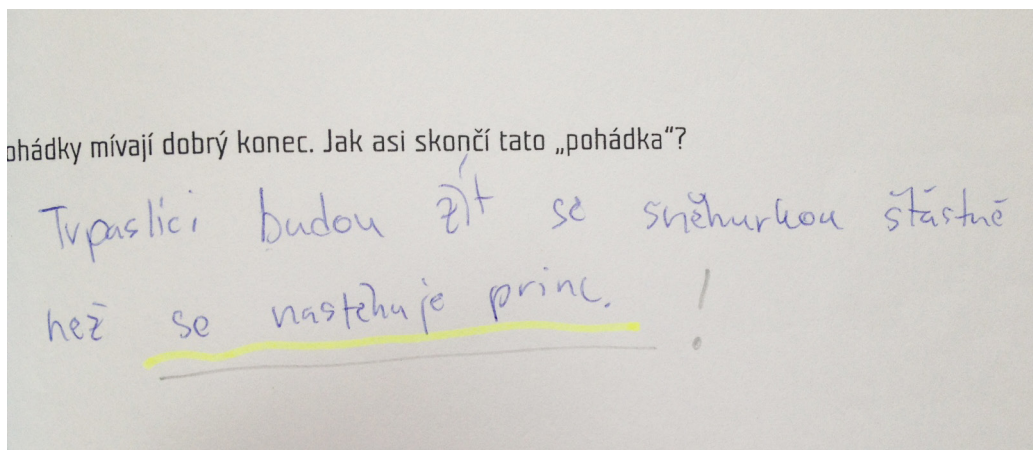 ohádky mívají dobrý konec. Jak asi skončí tato „pohádka“?
Trpaslíci budou žít se sněhurkou šťástně
než se nastěhuje princ. !